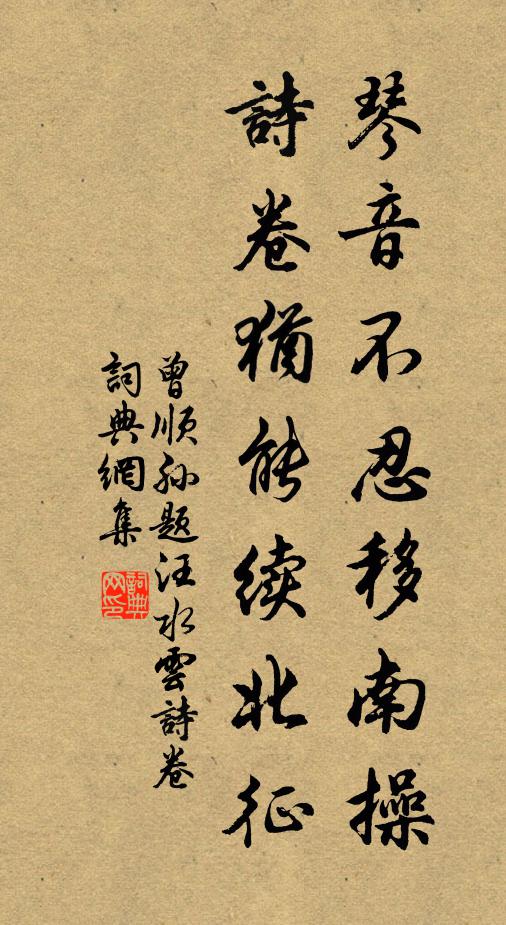 琴音不忍移南操
詩卷猶能续北征
曾順孙題汪水雲詩卷
詞典網集
詞典网印